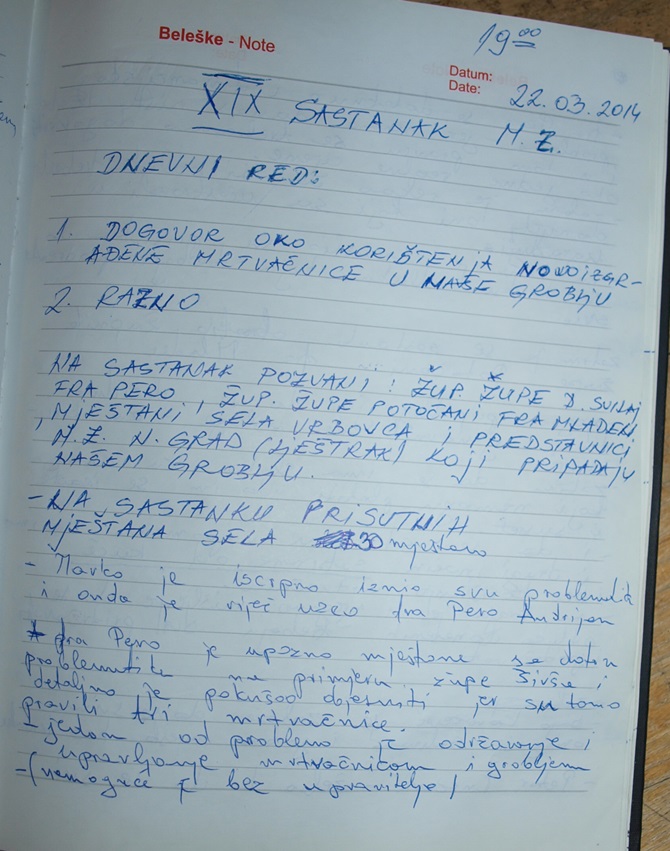 19 00
Beleške - Note
Datum:
Date: 22.03.2014
XIX SASTANAK M.Z.
DNEVNI RED:
1. DOGOVOR OKO KORIŠTENJA NOVOIZGR-
AĐENE MRTVAČNICE U NAŠE GROBLJU
2. RAZNO
NA SASTANAK POZVANI: ŽUP. ŽUPE D. SVILAJ
FRA PERO, ŽUP. ŽUPE POTOČANI FRA MLADEN
, MJEŠTANI SELA VRBOVCA I PREDSTAVNICI
M.Z. N. GRAD (LJEŠTRAK) KOJI PRIPADAJU
NAŠEM GROBLJU.
- NA SASTANKU PRISUTNIH
MJEŠTANA SELA 30 mještana
- je iscrpno iznio svu problematik
i onda je riječ uzeo fra Pero Andrijan
fra Pero je upozno mještane sa
problematik na primjeru župe i
detaljno je pokušao objasniti jer su tamo
pravili tri mrtvačnice.
- jedom od problema je održavanje i
upravljanje mrtvačnicom i grobljem
- (nemoguće je bez upravitelja)